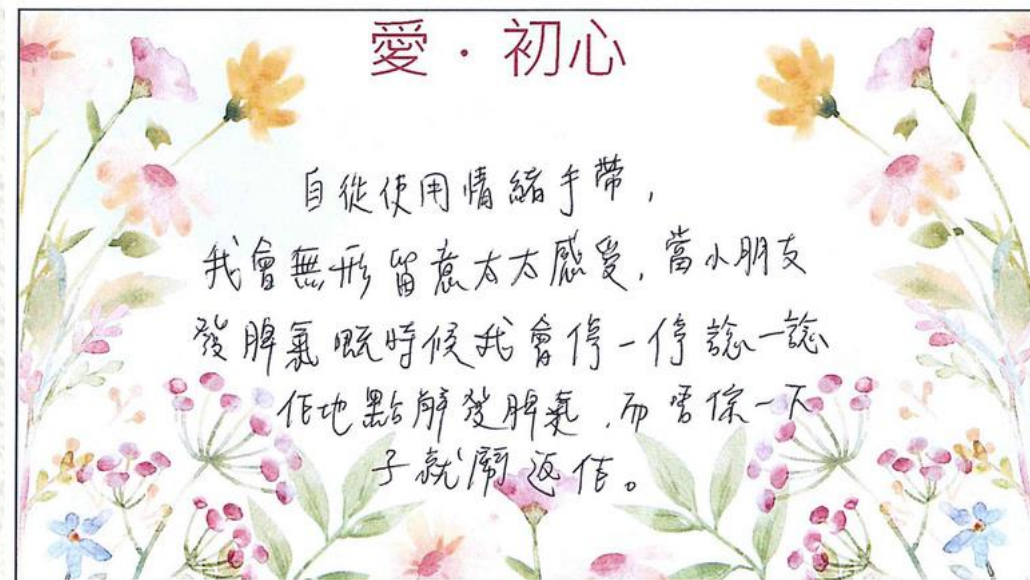 愛·初心
自從使用情緒手帶，
我會無形留意太太感受，當小朋友
發脾氣嘅時候我會停一停諗一諗
佢地點解發脾氣，而唔係一下
子就鬧返佢。